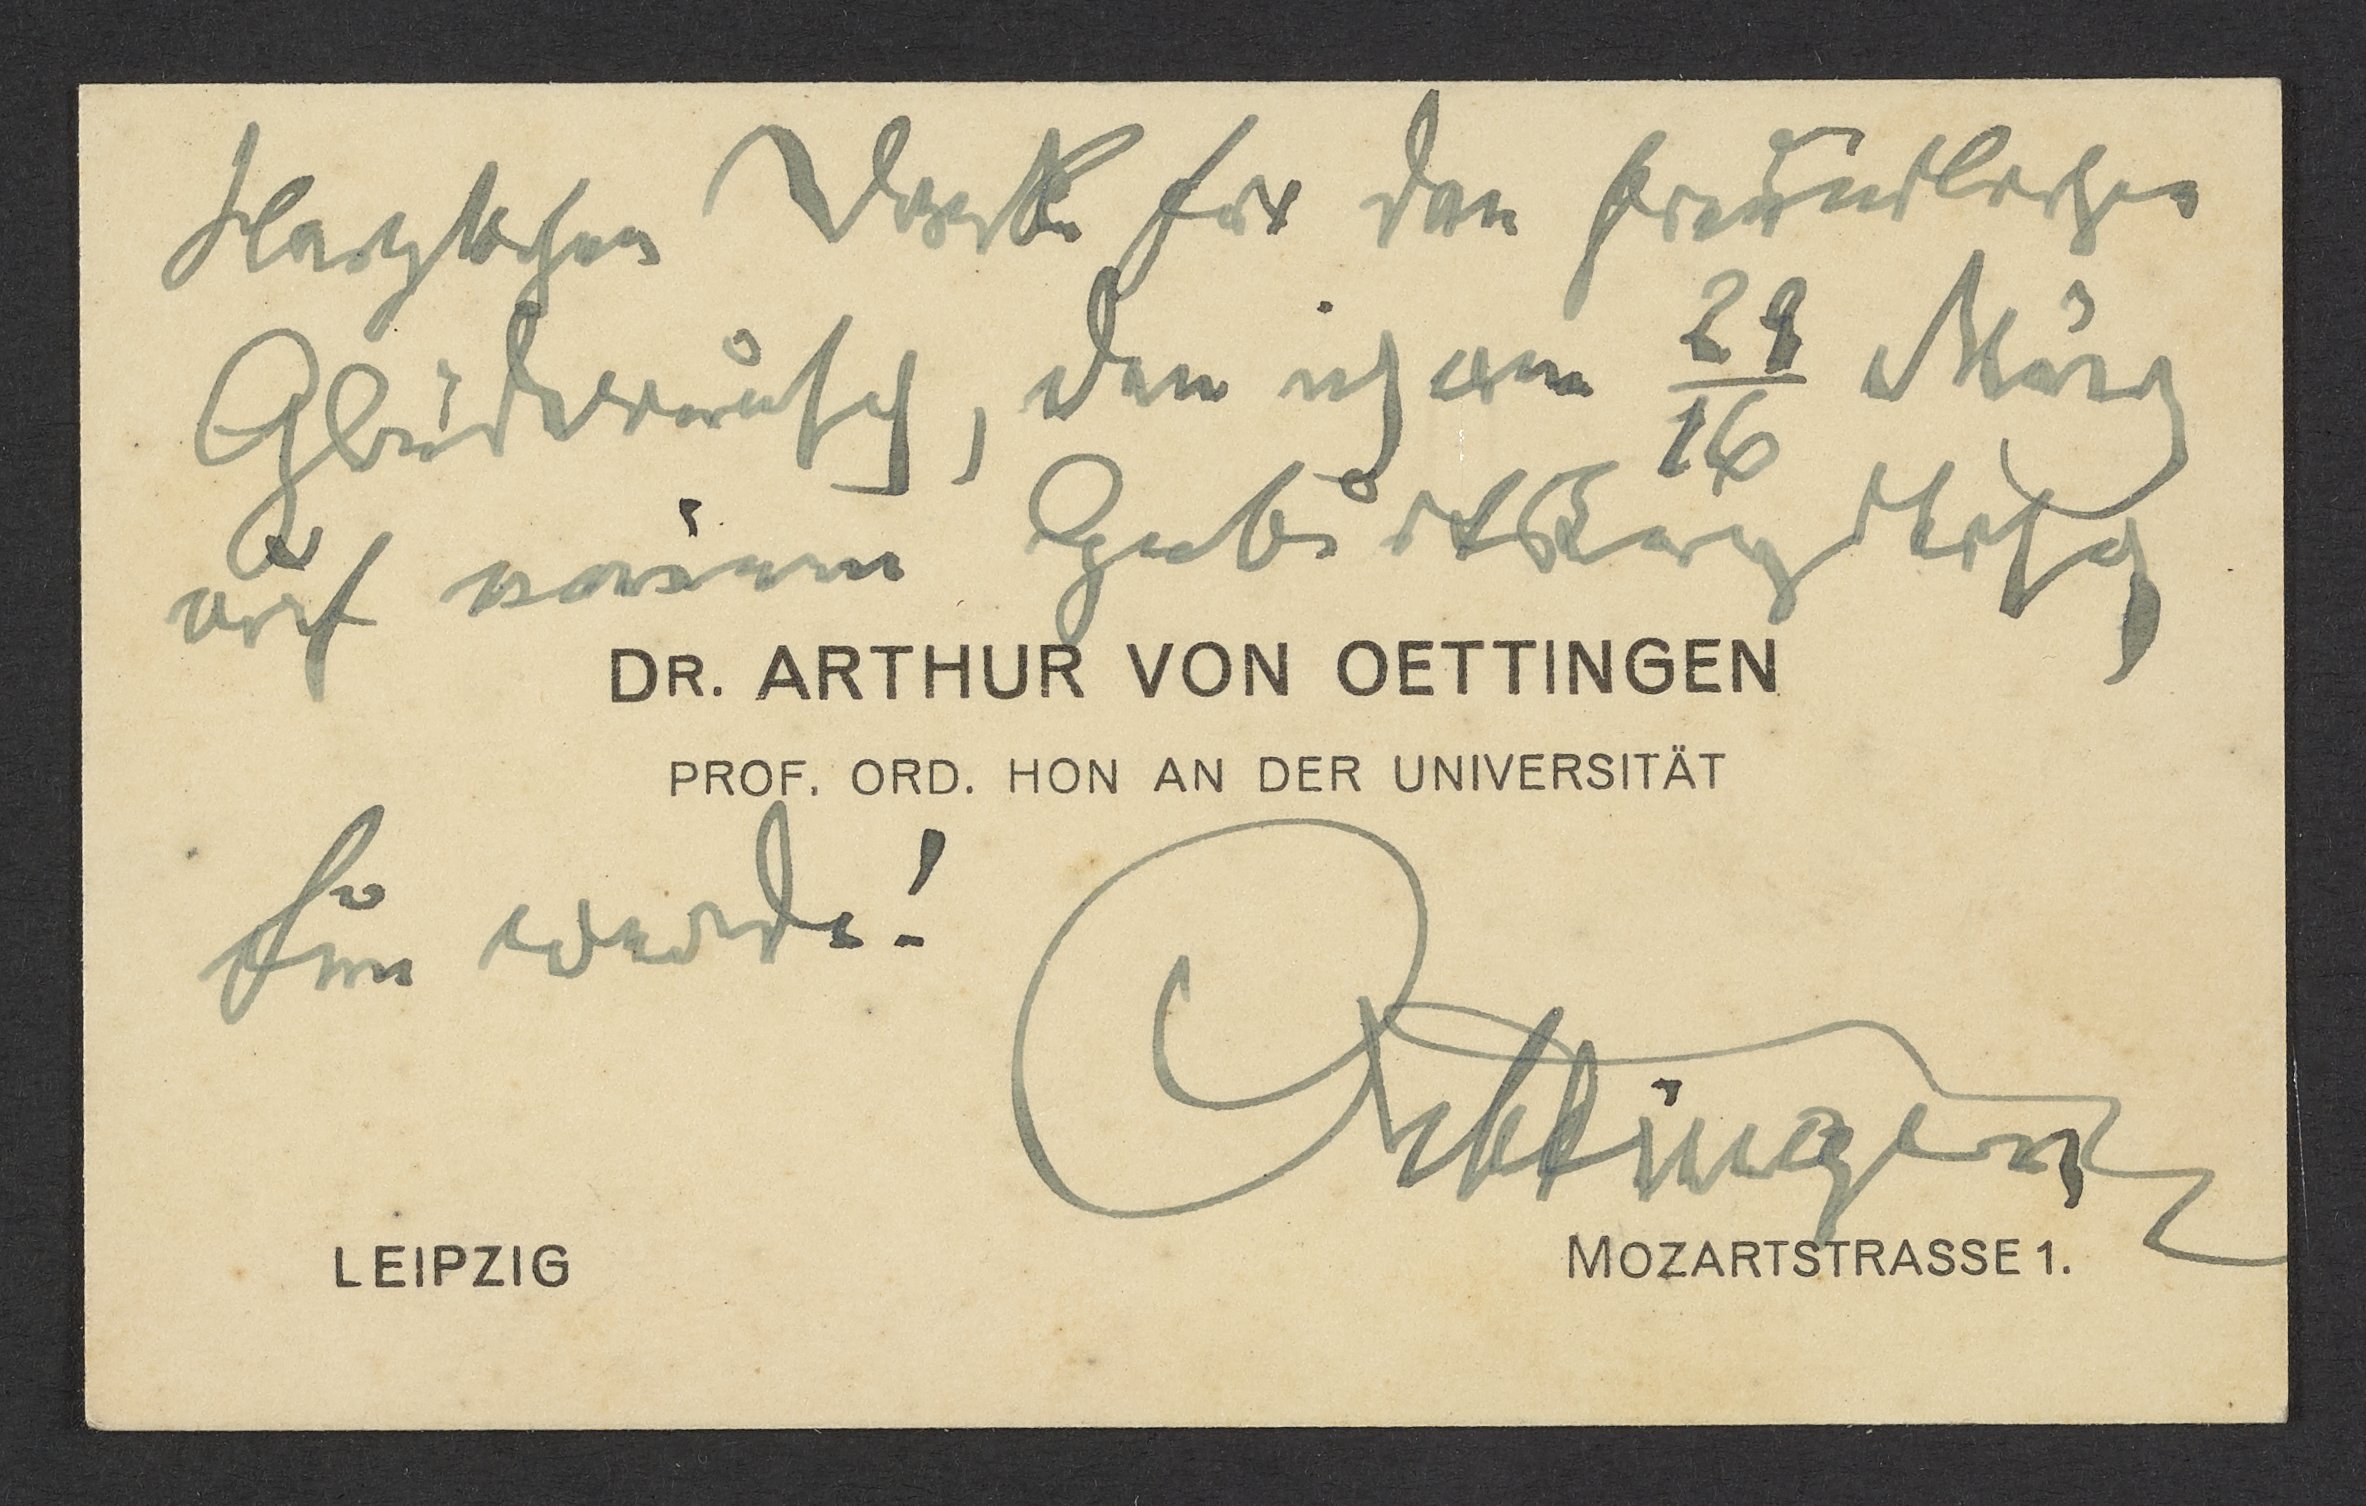 Herzlichen Dank für den freundlichen
Glückwunsch, den ich am 28/16 März
auf meinem Geburtstags
DR. ARTHUR VON OETTINGEN
PROF. ORD. HON AN DER UNIVERSITÄT
werde!
Oettingen
LEIPZIG
MOZARTSTRASSE 1.